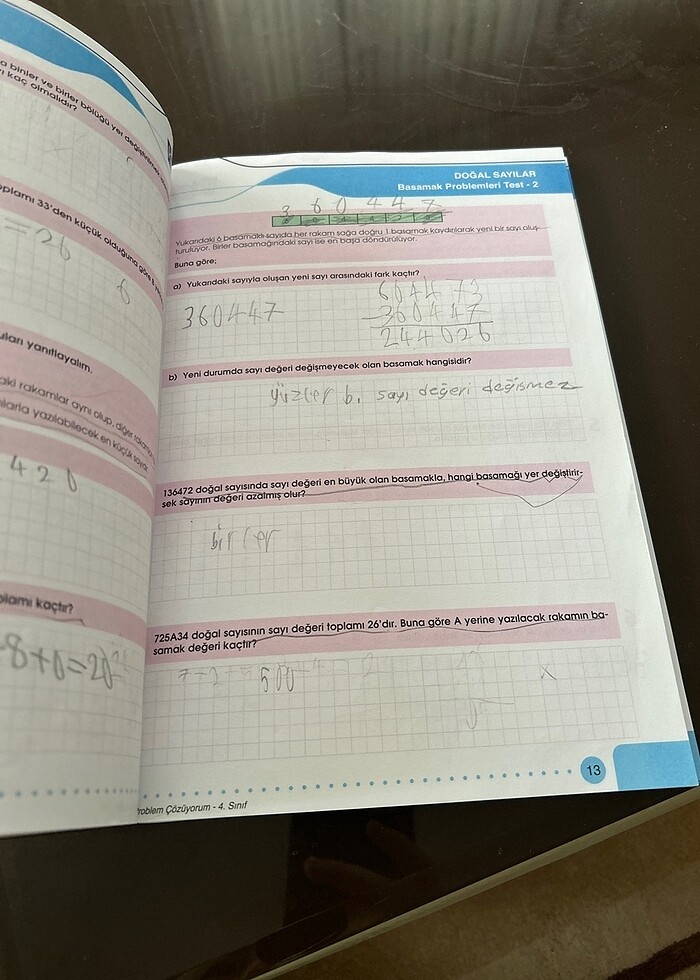 a binler ve birler bölüğü yer değiştirirse,
kaç olmalıdır?
oplamı 33'den küçük olduğuna göre
= 26
6
uları yanıtlayalım.
aki rakamlar aynı olup, diğer
larla yazılabilecek en küçük sayıdır.
420
plamı kaçtır?
-8+0=20
DOĞAL SAYILAR
Basamak Problemleri Test - 2
3 6 0 4 4 7
Yukarıdaki 6 basamaklı sayıda her rakam sağa doğru 1 basamak kaydırılarak yeni bir sayı oluş-
turuluyor. Birler basamağındaki sayı ise en başa döndürülüyor.
Buna göre;
a) Yukarıdaki sayıyla oluşan yeni sayı arasındaki fark kaçtır?
360447
604473
-360447
244026
b) Yeni durumda sayı değeri değişmeyecek olan basamak hangisidir?
yüzler b. sayı değeri değişmez
136472 doğal sayısında sayı değeri en büyük olan basamakla, hangi basamağı yer değiştirir-
sek sayının değeri azalmış olur?
birler
725A34 doğal sayısının sayı değeri toplamı 26'dır. Buna göre A yerine yazılacak rakamın ba-
samak değeri kaçtır?
500
x
13
Problem Çözüyorum - 4. Sınıf